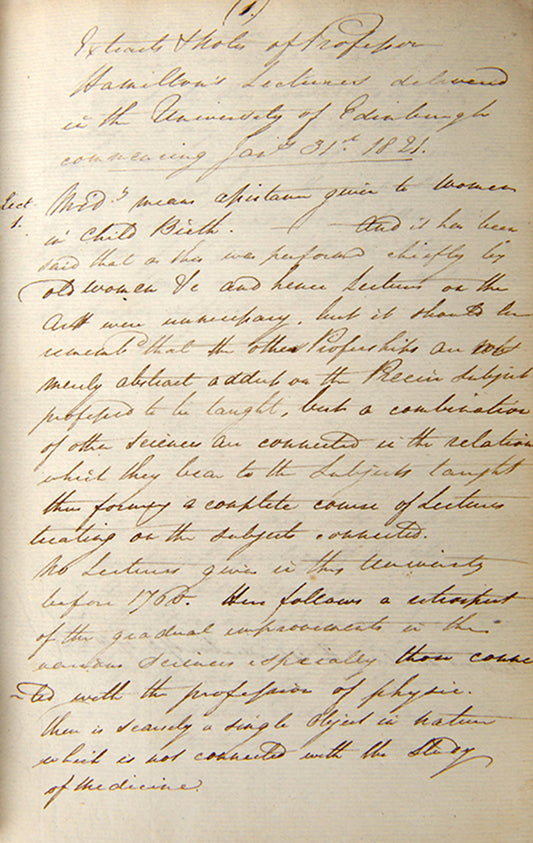 (1.)
Extracts & Notes of Professor
Hamilton's Lectures delivered
in the University of Edinburgh
commencing Jany 31st 1821.
Lect.
1.
Midy means assistance given to women
in Child Birth. — And it has been
said that as this was performed chiefly by
old women &c and hence Lectures on the
Art were unnecessary, but it should be
rememb'd that the other Professorships are not
merely abstract on the Precise subject
professed to be taught, but a combination
of other sciences are connected in the relation
which they bear to the Subjects taught
thus forming a complete course of Lectures
treating on the subjects connected.
No Lectures given in this University
before 1760. Here follows a retrospect
of the gradual improvements in the
various sciences especially those connec
-ted with the profession of physic.
There is scarcely a single object in nature
which is not connected with the Study
of Medicine.